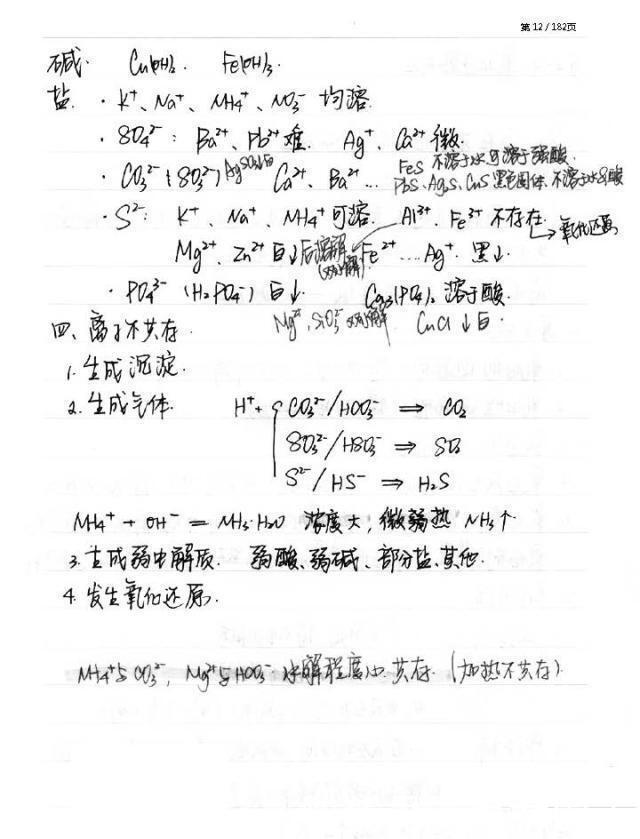 第 12 / 182页
碱. Cu(OH)₂. Fe(OH)₃.
盐. · K⁺、Na⁺、NH₄⁺、NO₃⁻ 均溶.
· SO₄²⁻ : Ba²⁺、Pb²⁺ 难. Ag⁺、Ca²⁺ 微.
· CO₃²⁻ (SO₃²⁻) Ca²⁺、Ba²⁺ ... FeS 不溶于水可溶于强酸.
PbS、Ag₂S、CuS 黑色固体、不溶于水&酸
· S²⁻: K⁺、Na⁺、NH₄⁺ 可溶. Al³⁺、Fe³⁺ 不存在. → 氧化还原
Mg²⁺、Zn²⁺ 白↓后溶解 (双水解) Fe²⁺ .... Ag⁺. 黑↓.
· PO₄³⁻ (H₂PO₄⁻) 白↓. Ca₃(PO₄)₂ 溶于酸.
Mg²⁺, SiO₃²⁻ 双水解 CuCl ↓白.
四、离子不共存.
1. 生成沉淀.
2. 生成气体. H⁺ + { CO₃²⁻/HCO₃⁻ ⇒ CO₂
SO₃²⁻/HSO₃⁻ ⇒ SO₂
S²⁻/HS⁻ ⇒ H₂S
NH₄⁺ + OH⁻ = NH₃·H₂O 浓度大, 微弱热 NH₃↑
3. 生成弱电解质. 弱酸、弱碱、部分盐、其他.
4. 发生氧化还原.
NH₄⁺与CO₃²⁻, Mg²⁺与HCO₃⁻ 水解程度小 共存. (加热不共存).